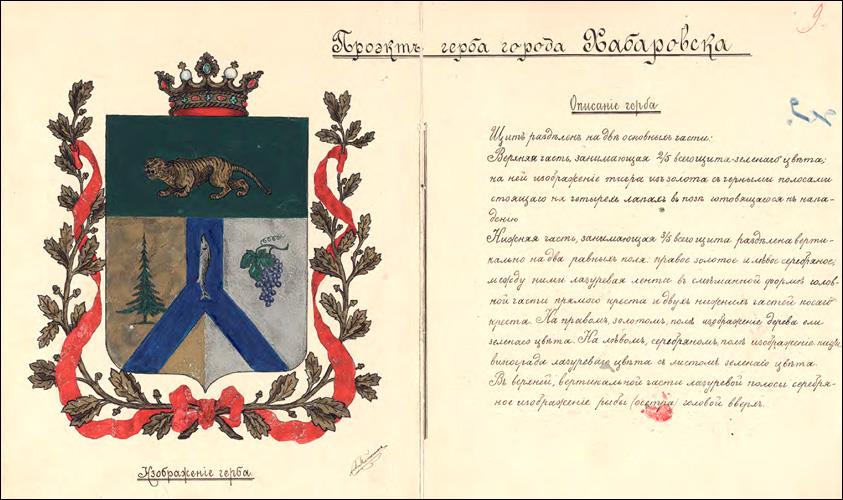 Проэктъ герба города Хабаровска
9
Описаніе герба
Щитъ раздѣленъ на двѣ основныхъ части:
Верхняя часть, занимающая 2/5 всего щита-зеленаго цвѣта;
на ней изображеніе тигра изъ золота съ черными полосами
стоящаго на четырехъ лапахъ въ позѣ готовящагося къ напа-
денію
Нижняя часть, занимающая 3/5 всего щита раздѣлена верти-
кально на два равныхъ поля: правое золотое и лѣвое серебряное;
между ними лазуревая лента въ смѣшанной формѣ голов-
ной части прямого креста и двухъ нижнихъ частей косаго
креста. На правомъ, золотомъ, полѣ изображеніе дерева ели
зеленаго цвѣта. На лѣвомъ, серебряномъ, полѣ изображеніе кисти
винограда лазуреваго цвѣта съ листомъ зеленаго цвѣта.
Въ верхней, вертикальной части лазуревой полосы серебря-
ное изображеніе рыбы (осетра) головой вверхъ.
Изображеніе герба